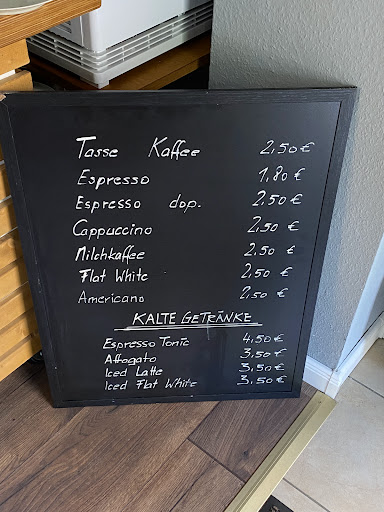 Tasse Kaffee 2,50 €
Espresso 1,80 €
Espresso dop. 2,50 €
Cappuccino 2,50 €
Milchkaffee 2,50 €
Flat White 2,50 €
Americano 2,50 €
KALTE GETRÄNKE
Espresso Tonic 4,50 €
Affogato 3,50 €
Iced Latte 3,50 €
Iced Flat White 3,50 €